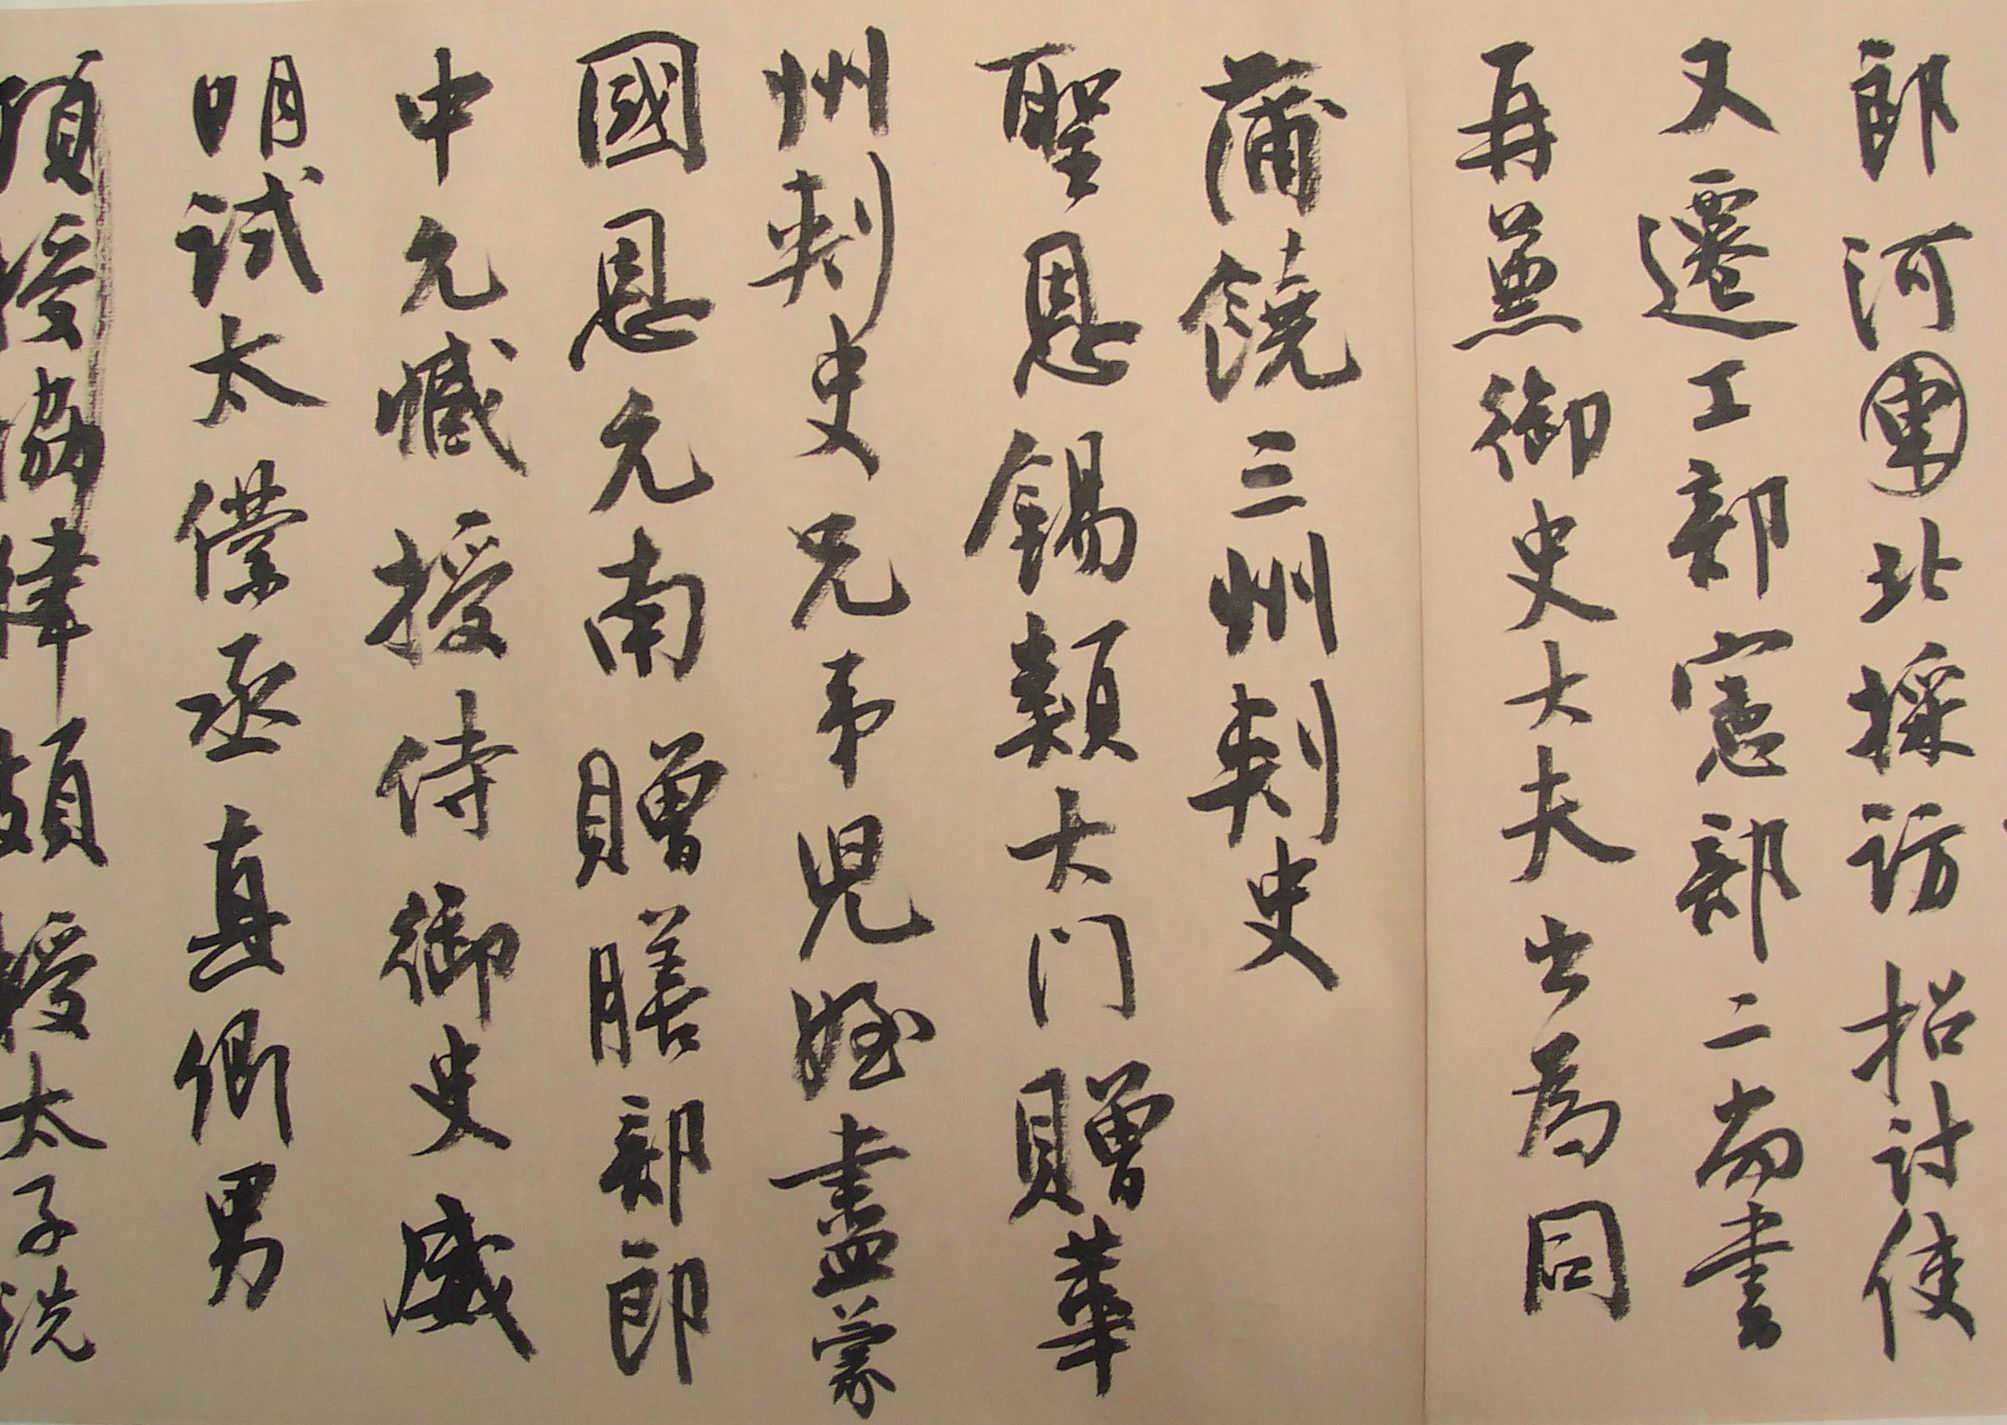 郎河東北採訪招討使
又遷工部憲部二尚書
再兼御史大夫出為同
蒲饒三州刺史
聖恩錫類大門贈華
州刺史兄弟児姪盡蒙
國恩允南贈膳部郎
中允臧授侍御史威
明試太僕丞真卿男
頂授協律頗授太子洗